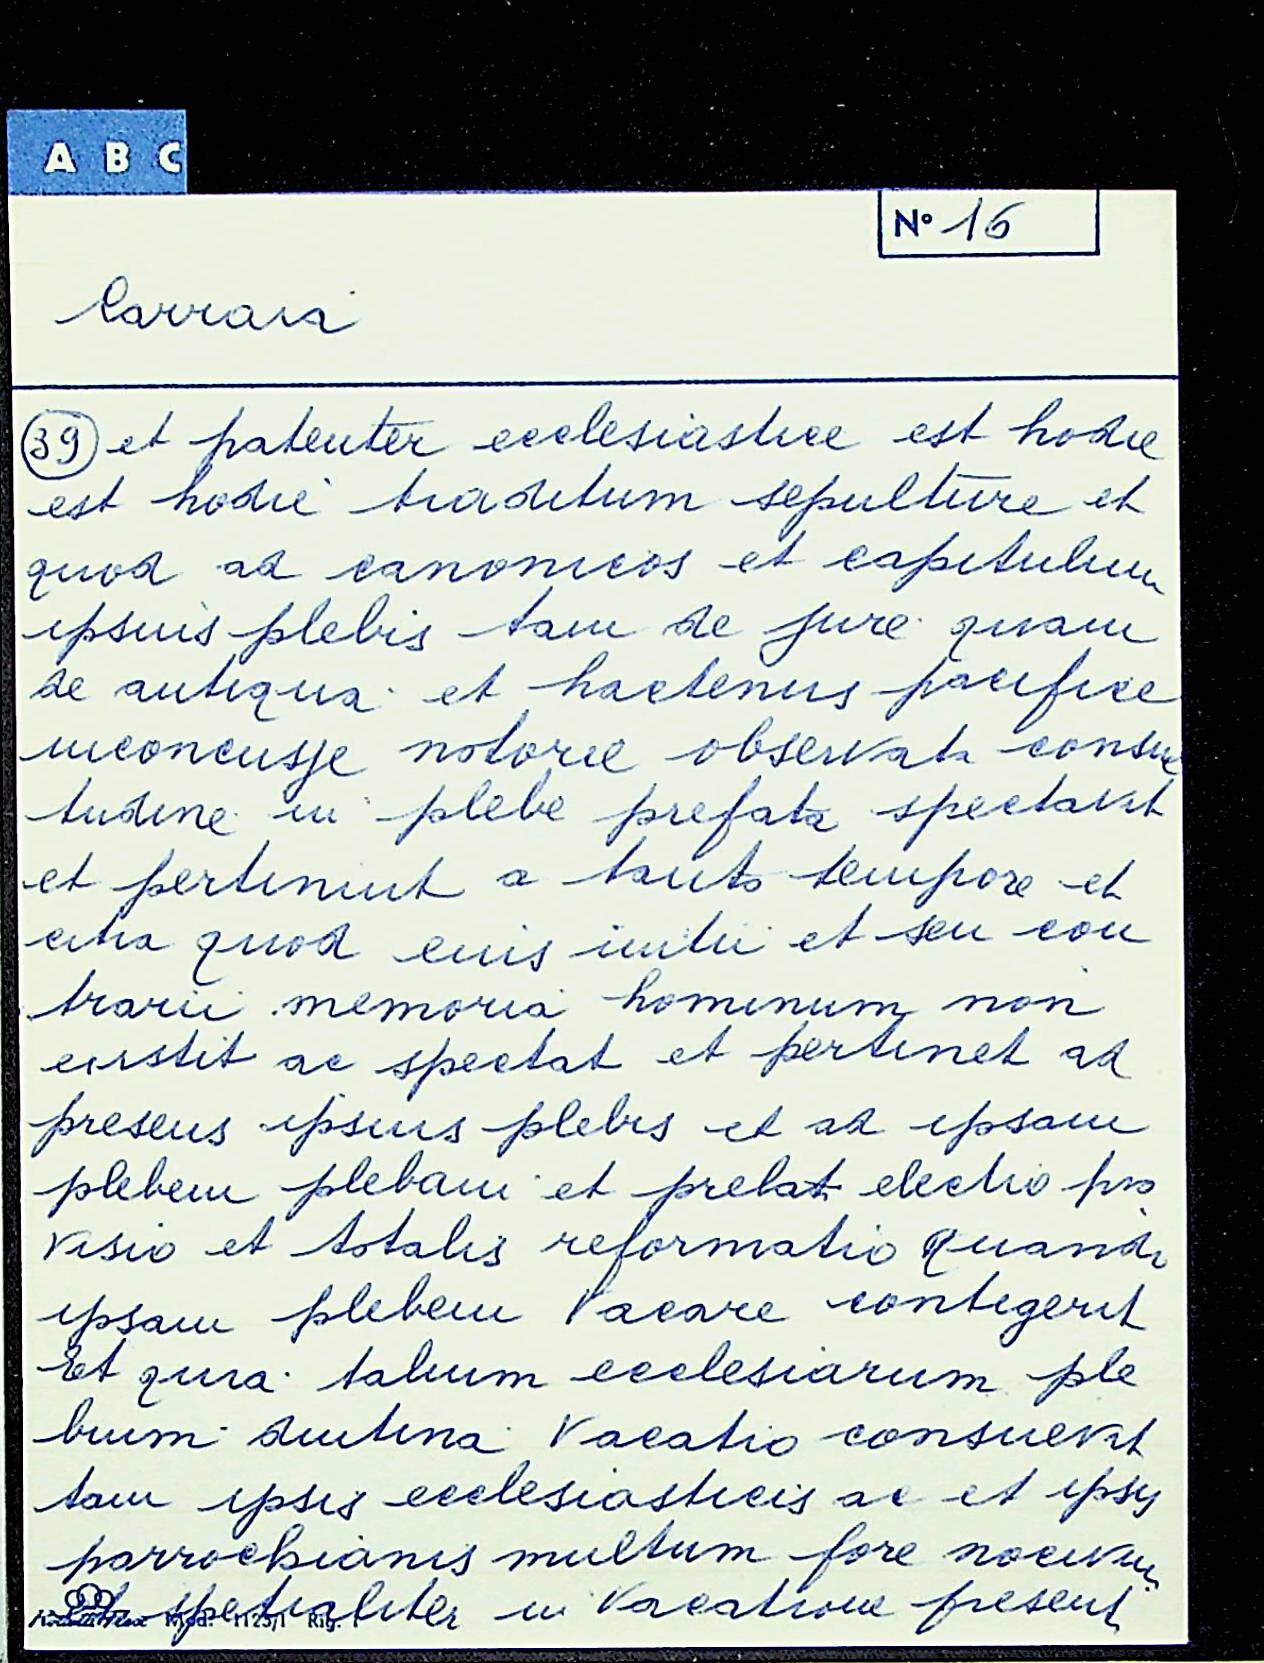 A B C
N° 16
Carrara
39 et patenter ecclesiastice est hodie
est hodie traditum sepulture et
quod ad canonicos et capitulum
ipsuis plebis tam de jure quam
de antiqua et hactenus pacifice
inconcusse notorie observata consue
tudine in plebe prefata spectavit
et pertinuit a tanto tempore et
citra quod eius initii et seu con
trarii memoria hominum non
existit ac spectat et pertinet ad
presens ipsius plebis et ad ipsam
plebem plebani et prelati electio pro
visio et totalis reformatio quando
ipsam plebem vacare contigerit
Et quia talium ecclesiarum ple
bium diutina vacatio consuevit
tam ipsis ecclesiasticis ac et ipsis
parrochianis multum fore nocivum
Et spetialiter in vacatione present
Mod. 1125/1 Rig.